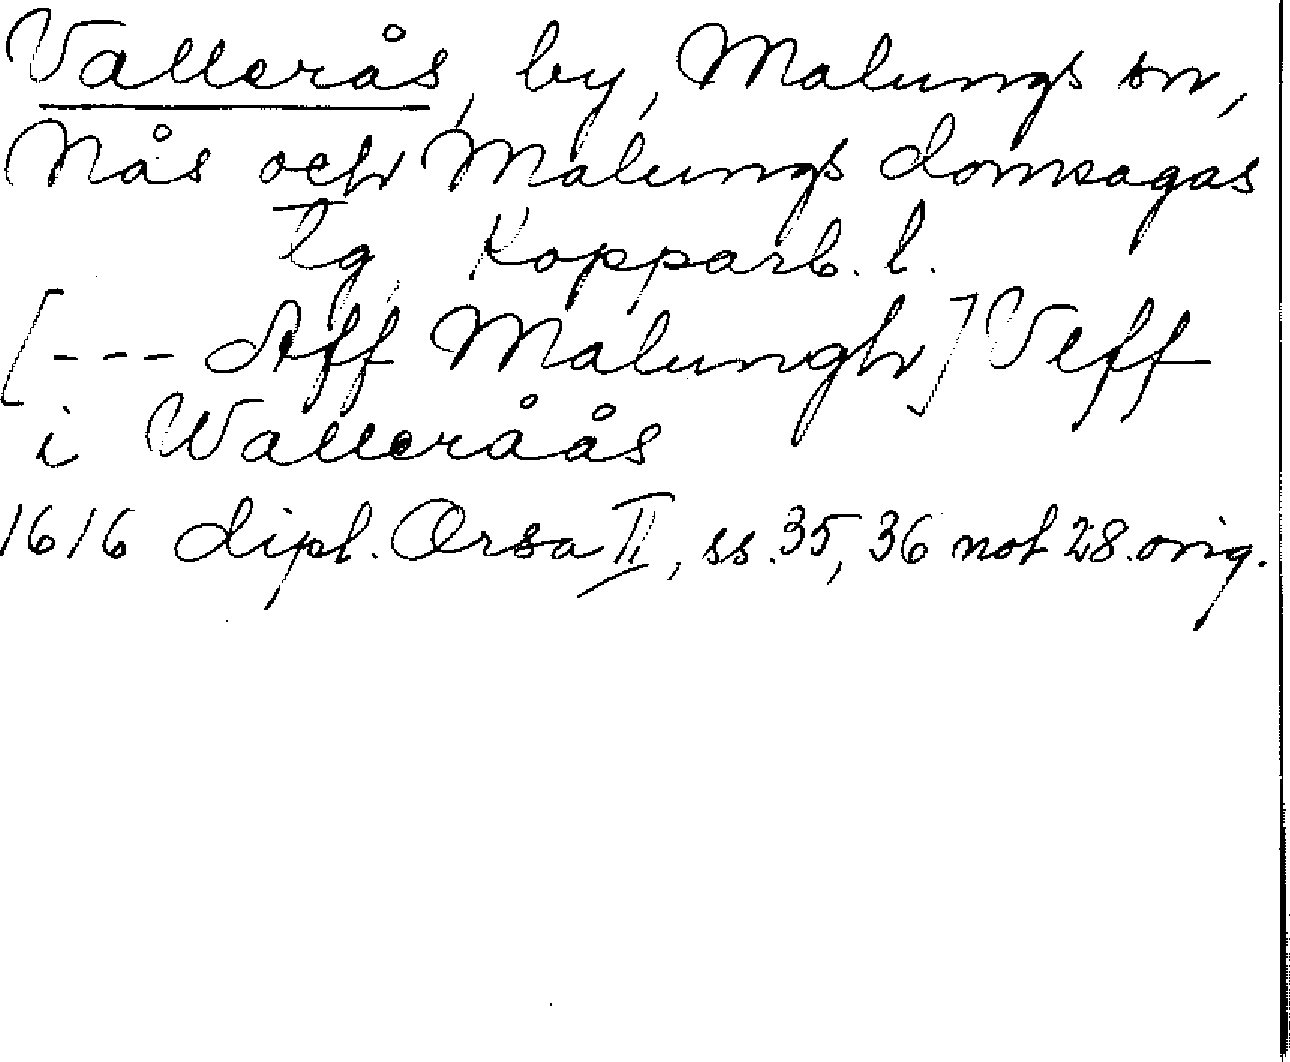 Vallerås, by, Malungs sn,
Nås och Malungs domsagas
Tg, Kopparb. l.
[--- Aff Malungh] Veff
i Walleråås
1616 dipl. Orsa II, ss. 35, 36 not 28. orig.